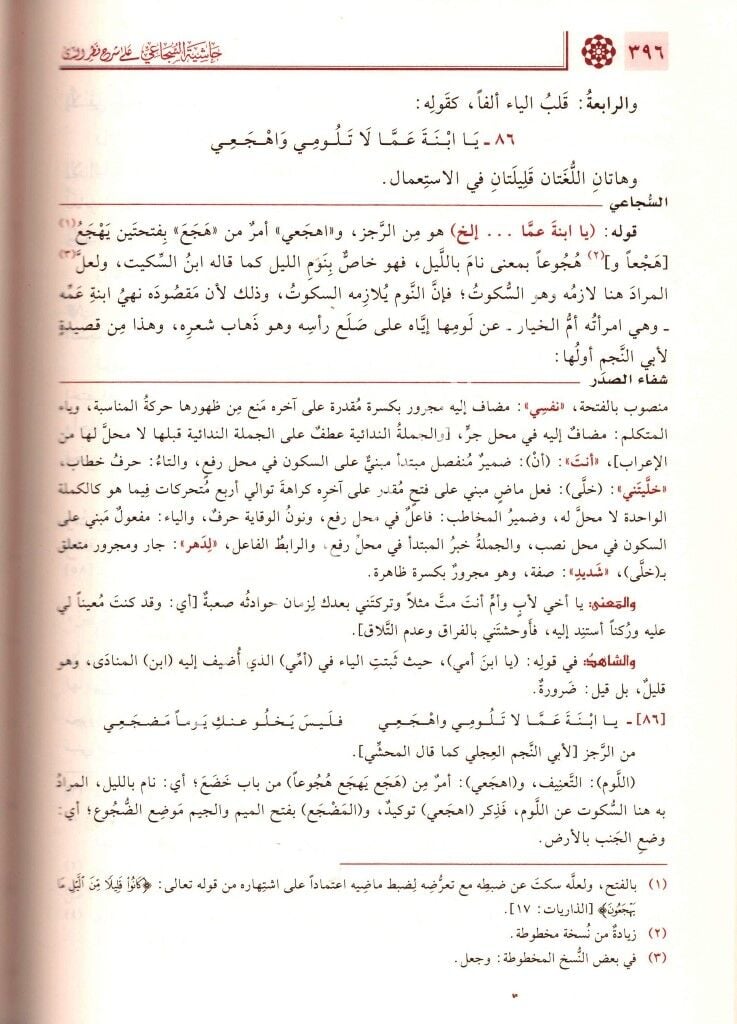 ٣٩٦ حاشية السجاعي على شرح قطر الندى
والرابعةُ: قَلبُ الياء ألفاً، كقَولِه:
٨٦ ـ يَـا ابْـنَـةَ عَـمَّـا لَا تَـلُـومِـي وَاهْـجَـعِـي
وهاتانِ اللُّغَتان قَلِيلَتانِ في الاستِعمال.
السُّجاعي
قوله: (يا ابنةَ عمَّا ... إلخ) هو مِن الرَّجز، و«اهجَعي» أمرٌ من «هَجَعَ» بِفتحتَين يَهْجَعُ(١)
[هَجْعاً و](٢) هُجُوعاً بمعنى نامَ باللَّيل، فهو خاصٌّ بِنَومِ الليل كما قاله ابنُ السِّكيت، ولعلَّ(٣)
المرادَ هنا لازمُه وهو السُّكوتُ؛ فإنَّ النَّوم يُلازِمه السكوتُ، وذلك لأن مَقصُودَه نهيُ ابنةِ عَمِّه
ـ وهي امرأتُه أمُّ الخيار ـ عن لَومِها إيَّاه على صَلَع رأسِه وهو ذَهاب شعرِه، وهذا مِن قصيدةٍ
لأبي النَّجم أولُها:
شفاء الصدَر
منصوب بالفتحة، «نفسِي»: مضاف إليه مجرور بكسرة مُقدرة على آخره مَنع مِن ظهورها حركةُ المناسبة، وياء
المتكلم: مضافٌ إليه في محل جرٍّ، [والجملةُ الندائية عطفٌ على الجملة الندائية قبلها لا محلَّ لها من
الإعراب]، «أنتَ»: (أنْ): ضميرٌ مُنفصل مبتدأ مبنيٌّ على السكون في محل رفعٍ، والتاءُ: حرفُ خطاب،
«خلَّيتَني»: (خلَّى): فعل ماضٍ مبني على فتحٍ مُقدر على آخرِه كراهةَ توالي أربع مُتحركات فِيما هو كالكلمة
الواحدة لا محلَّ له، وضميرُ المخاطب: فاعلٌ في محل رفع، ونونُ الوقاية حرفٌ، والياء: مفعولٌ مَبني على
السكون في محل نصب، والجملة خبرُ المبتدأ في محلِّ رفعٍ، والرابط الفاعل، «لِدَهر»: جار ومجرور متعلق
بـ(خلَّى)، «شَديدِ»: صفة، وهو مجرورٌ بكسرة ظاهرة.
والمَعنى: يا أخي لأبٍ وأمٍّ أنتَ متَّ مثلاً وتركتَني بعدك لِزمان حوادثُه صعبةٌ [أي: وقد كنتَ مُعيناً لي
عليه ورُكناً أستنِد إليه، فأَوحشتَني بالفراق وعدم التَّلاق].
والشاهدُ: في قولِه: (يا ابنَ أمي)، حيث ثَبتتِ الياء في (أمِّي) الذي أُضيف إليه (ابن) المنادَى، وهو
قليلٌ، بل قيل: ضَرورةٌ.
[٨٦] ـ يـا ابْـنَـةَ عَـمَّـا لا تَـلُـومِـي واهْـجَـعِـي فـلَـيـسَ يَـخـلُـو عنـكِ يَـومـاً مَـضـجَـعِـي
من الرَّجز [لأبي النَّجم العِجلي كما قال المحشِّي].
(اللَّوم): التَّعنِيف، و(اهجَعي): أمرٌ مِن (هَجَع يَهجَع هُجُوعاً) من باب خَضَعَ؛ أي: نام بالليل، المرادُ
به هنا السُّكوت عن اللَّوم، فَذِكر (اهجَعي) توكيدٌ، و(المَضْجَع) بفتح الميم والجيم مَوضِع الضُّجُوع؛ أي:
وضعِ الجَنب بالأرض.
(١) بالفتح، ولعلَّه سكتَ عن ضبطِه مع تعرُّضِه لِضبط ماضِيه اعتماداً على اشتِهاره من قوله تعالى: ﴿كَانُواْ قَلِيلًا مِّنَ ٱلَّيْلِ مَا
يَهْجَعُونَ﴾ [الذاريات: ١٧].
(٢) زيادةٌ من نُسخة مخطوطة.
(٣) في بعض النُّسخ المخطوطة: وجعل.